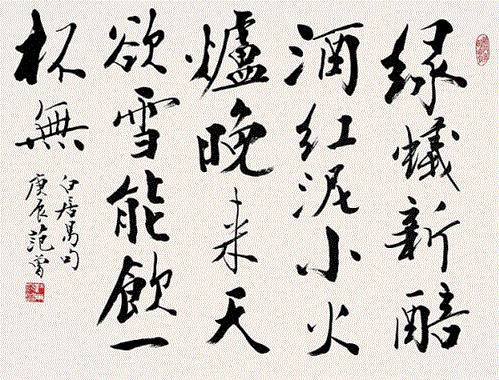 绿蟻新醅
酒红泥小火
爐晚来天
欲雪能飲一
杯無
白居易句
庚辰范曾